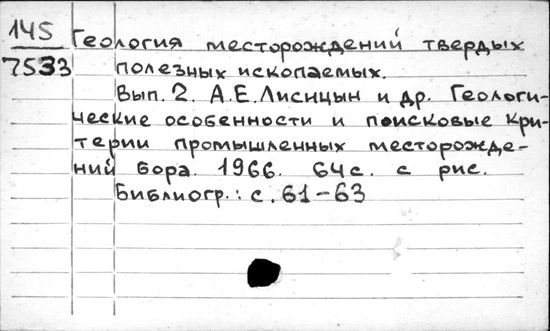 145 Геология месторождений твердых
7533 полезных ископаемых.
Вып. 2. А.Е. Лисицын и др. Геологи-
ческие особенности и поисковые кри-
терии промышленных месторожде-
ний бора. 1966. 64с. с рис.
Библиогр.: с. 61-63